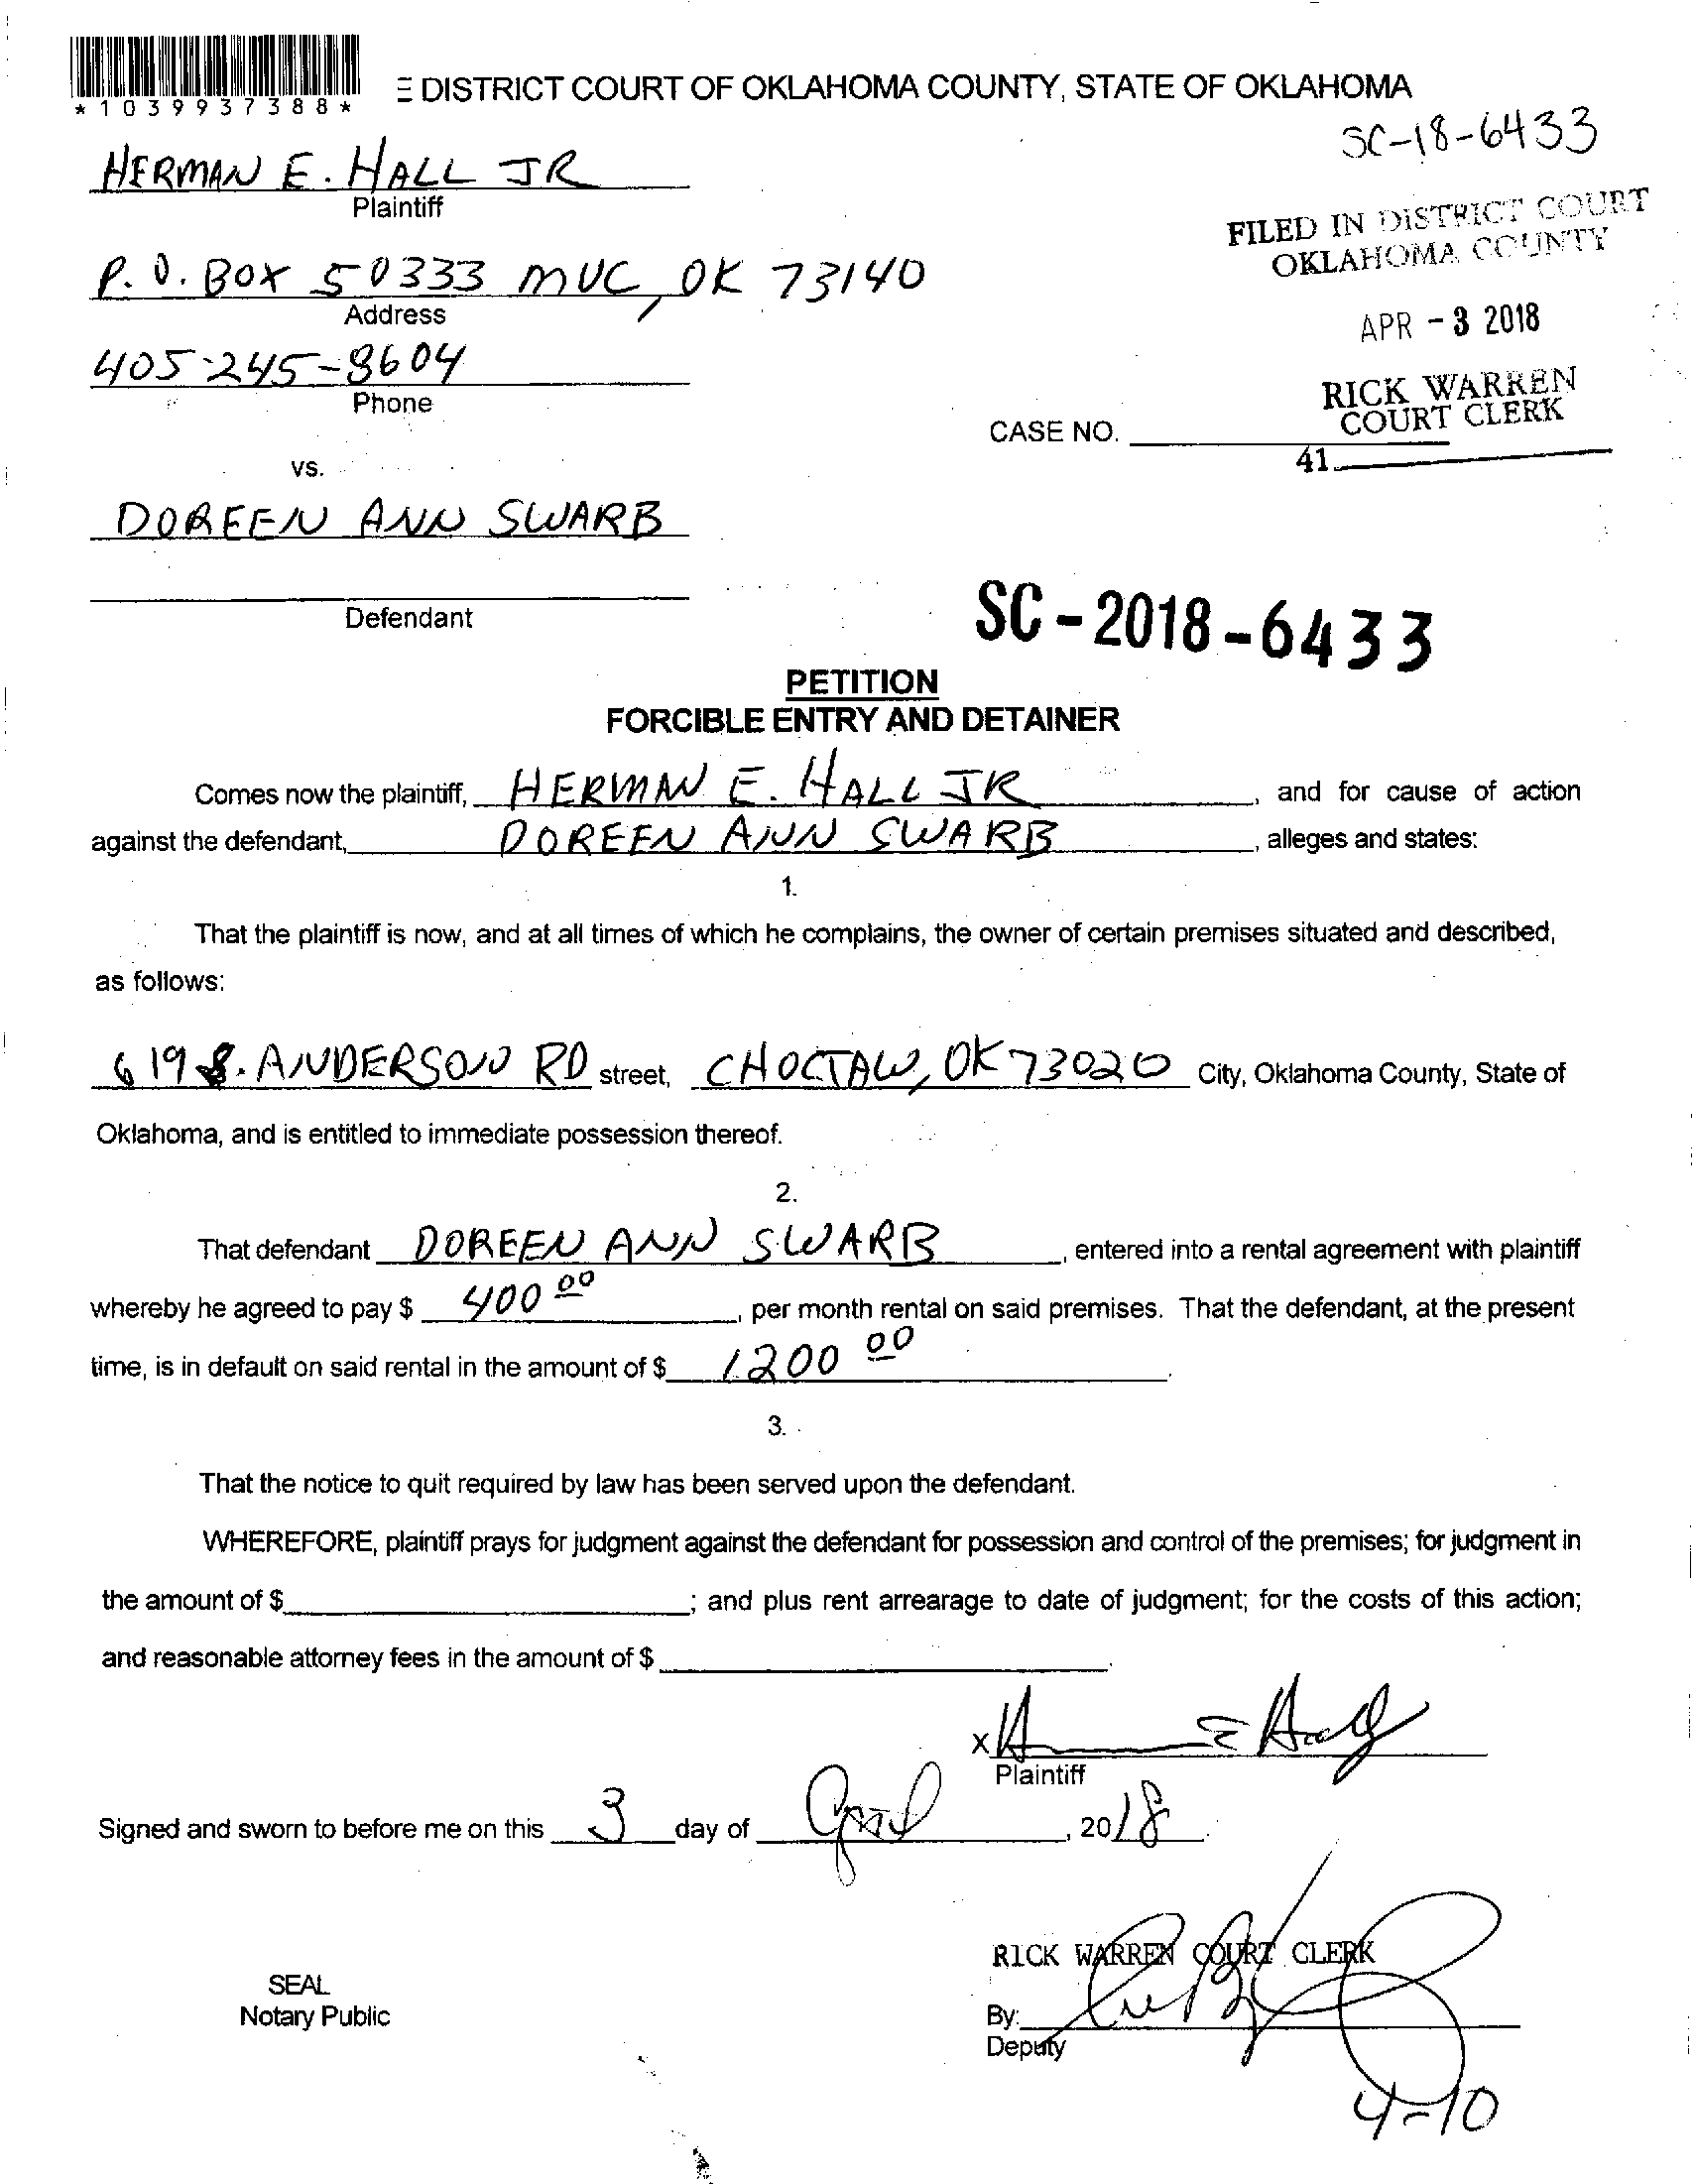 *1039937388*
E DISTRICT COURT OF OKLAHOMA COUNTY, STATE OF OKLAHOMA
SC-18-6433
HERMAN E. HALL JR
Plaintiff
FILED IN DISTRICT COURT
OKLAHOMA COUNTY
P.O. BOX 50333 MWC, OK 73140
Address
APR - 3 2018
405-245-8604
Phone
RICK WARREN
COURT CLERK
CASE NO.
41
vs.
DOREEN ANN SWARB
Defendant
SC-2018-6433
PETITION
FORCIBLE ENTRY AND DETAINER
Comes now the plaintiff, HERMAN E. HALL JR, and for cause of action
against the defendant, DOREEN ANN SWARB, alleges and states:
1.
That the plaintiff is now, and at all times of which he complains, the owner of certain premises situated and described,
as follows:
619 S. ANDERSON RD street, CHOCTAW, OK 73020 City, Oklahoma County, State of
Oklahoma, and is entitled to immediate possession thereof.
2.
That defendant DOREEN ANN SWARB, entered into a rental agreement with plaintiff
whereby he agreed to pay $ 400 00, per month rental on said premises. That the defendant, at the present
time, is in default on said rental in the amount of $ 1200 00.
3.
That the notice to quit required by law has been served upon the defendant.
WHEREFORE, plaintiff prays for judgment against the defendant for possession and control of the premises; for judgment in
the amount of $ ; and plus rent arrearage to date of judgment; for the costs of this action;
and reasonable attorney fees in the amount of $ .
x H E Hall
Plaintiff
Signed and sworn to before me on this 3 day of April, 2018.
RICK WARREN COURT CLERK
SEAL
Notary Public
By:
Deputy
4-10